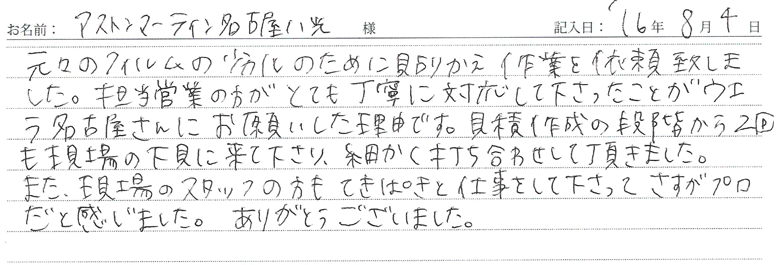 お名前: アストンマーティン名古屋八光 様 記入日: '16年 8月 4日
元々のフィルムの劣化のために貼りかえ作業を依頼致しま
した。担当営業の方がとても丁寧に対応して下さったことがウエ
ラ名古屋さんにお願いした理由です。見積作成の段階から2回
も現場の下見に来て下さり、細かく打ち合わせして頂きました。
また、現場のスタッフの方もてきぱきと仕事をして下さってさすがプロ
だと感じました。 ありがとうございました。